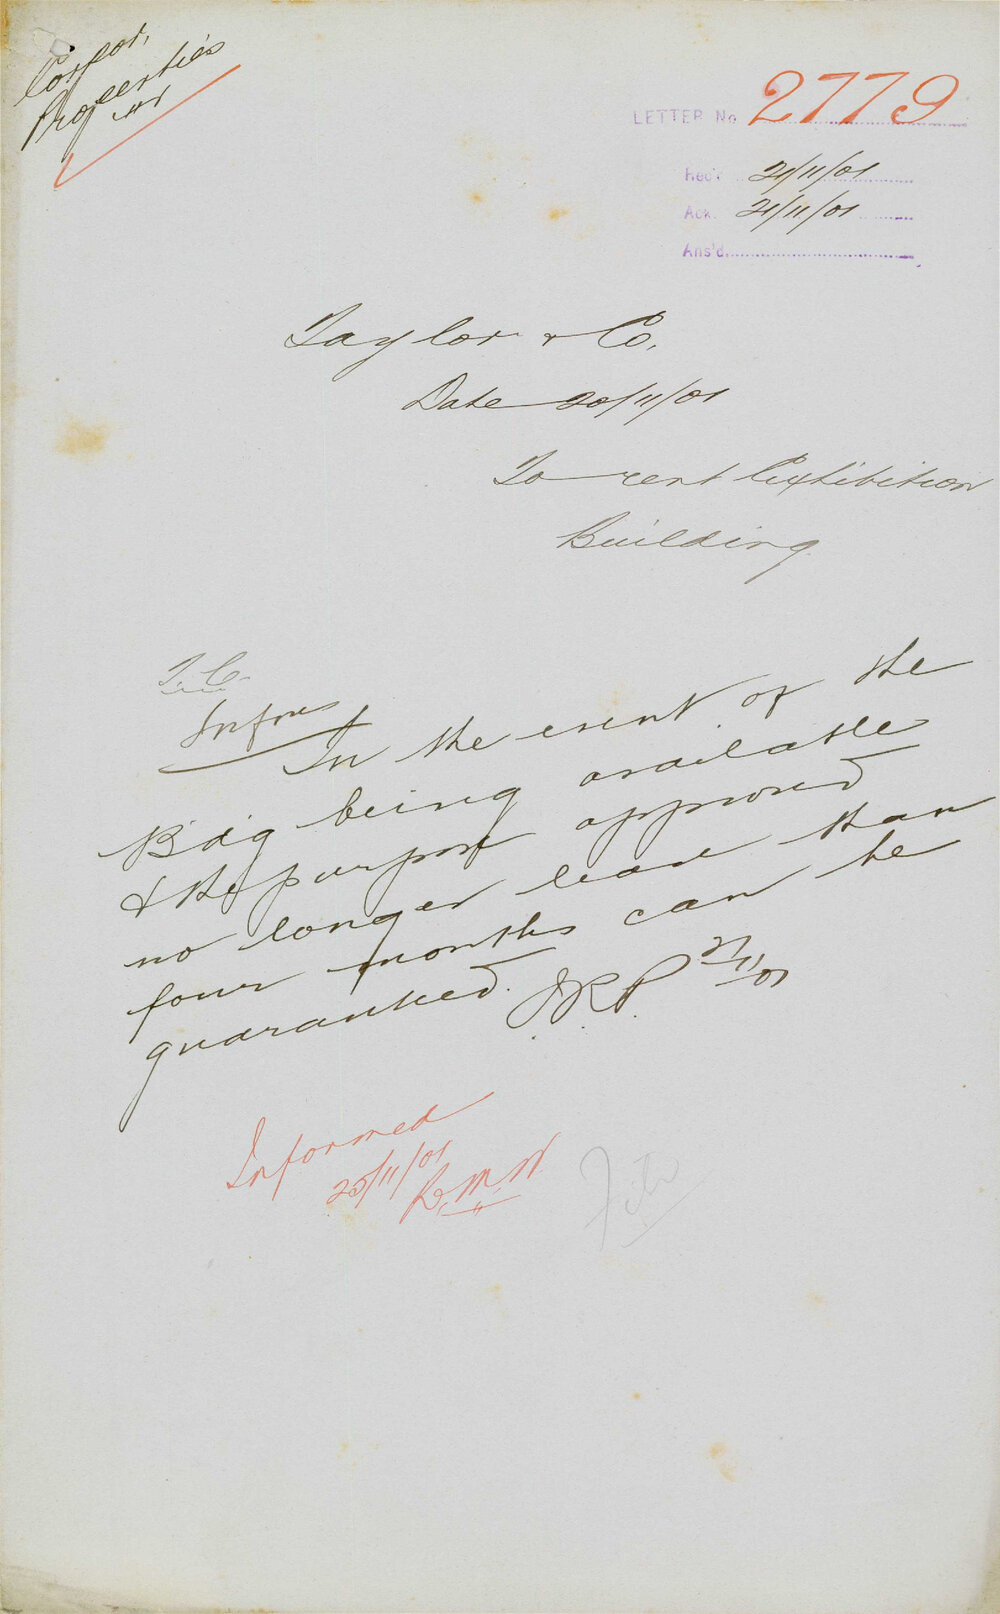 Corpor,
Properties
LETTER No 2779
Rec'd 21/11/01
Ack. 21/11/01
Ans'd
Taylor & Co.
Date 20/11/01
To rent Exhibition
Building
T. C.
Inform
In the event of the
B'd'g being available
& the purpose approved
no longer lease than
four months can be
guaranteed. 
21/11/01
Informed
25/11/01
File